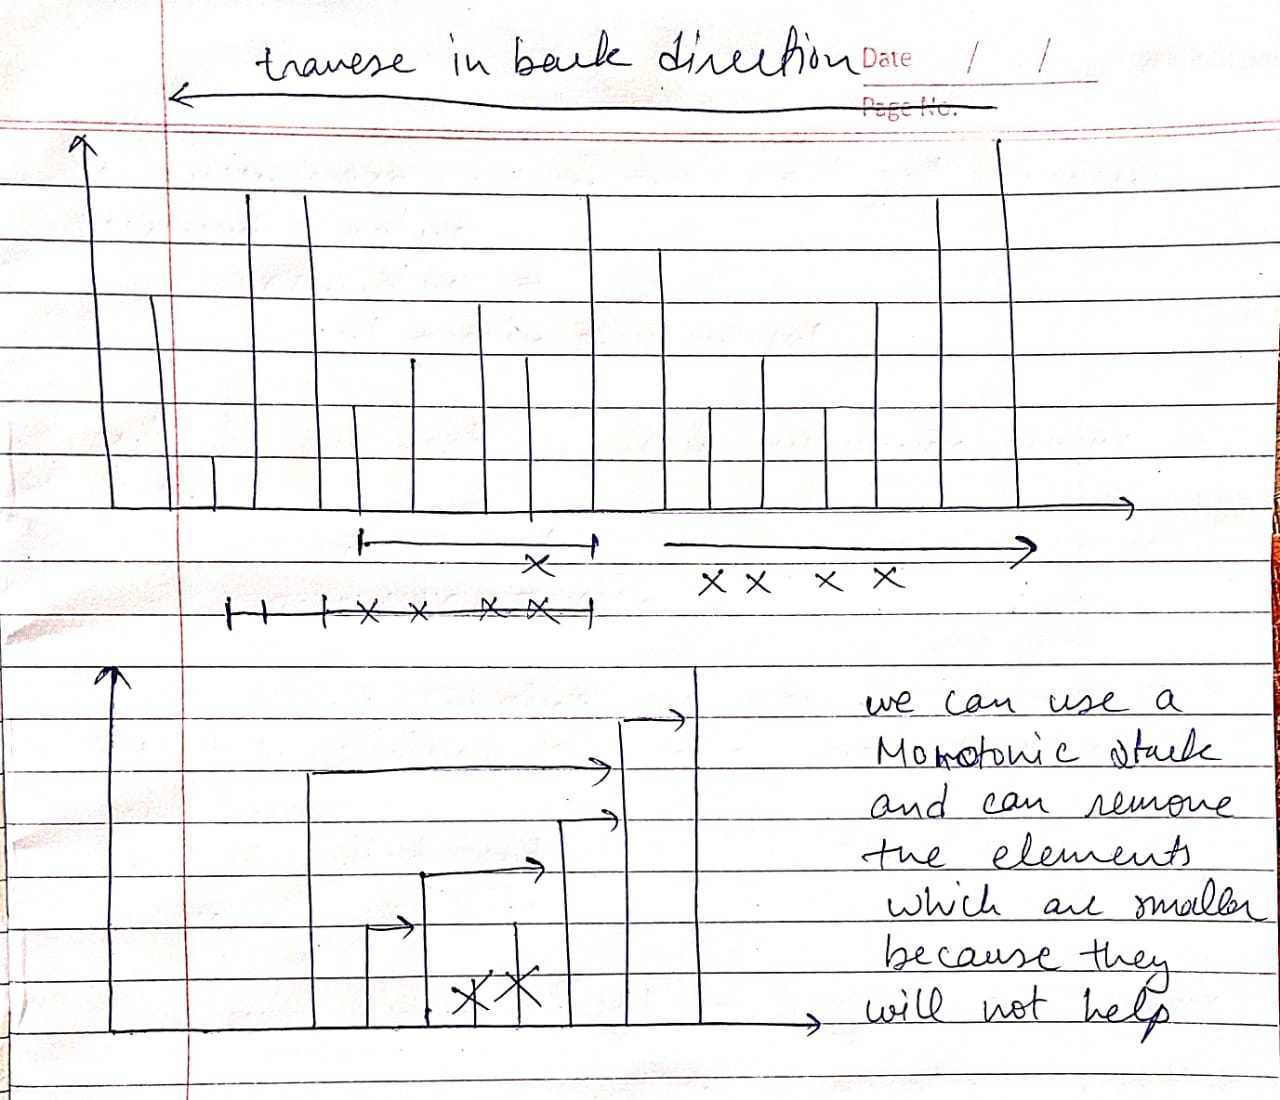 travese in back direction
Date / /
Page No.
we can use a
Monotonic stack
and can remove
the elements
which are smaller
because they
will not help